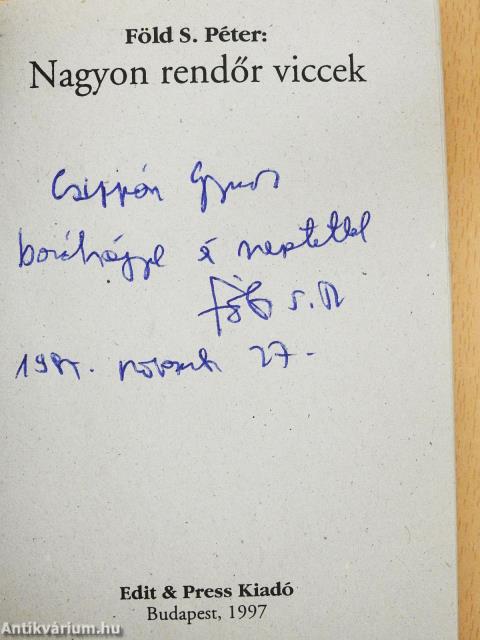 Föld S. Péter:
Nagyon rendőr viccek
barátsággal és szeretettel
Föld S. P.
november 27.
Edit & Press Kiadó
Budapest, 1997
Antikvárium.hu